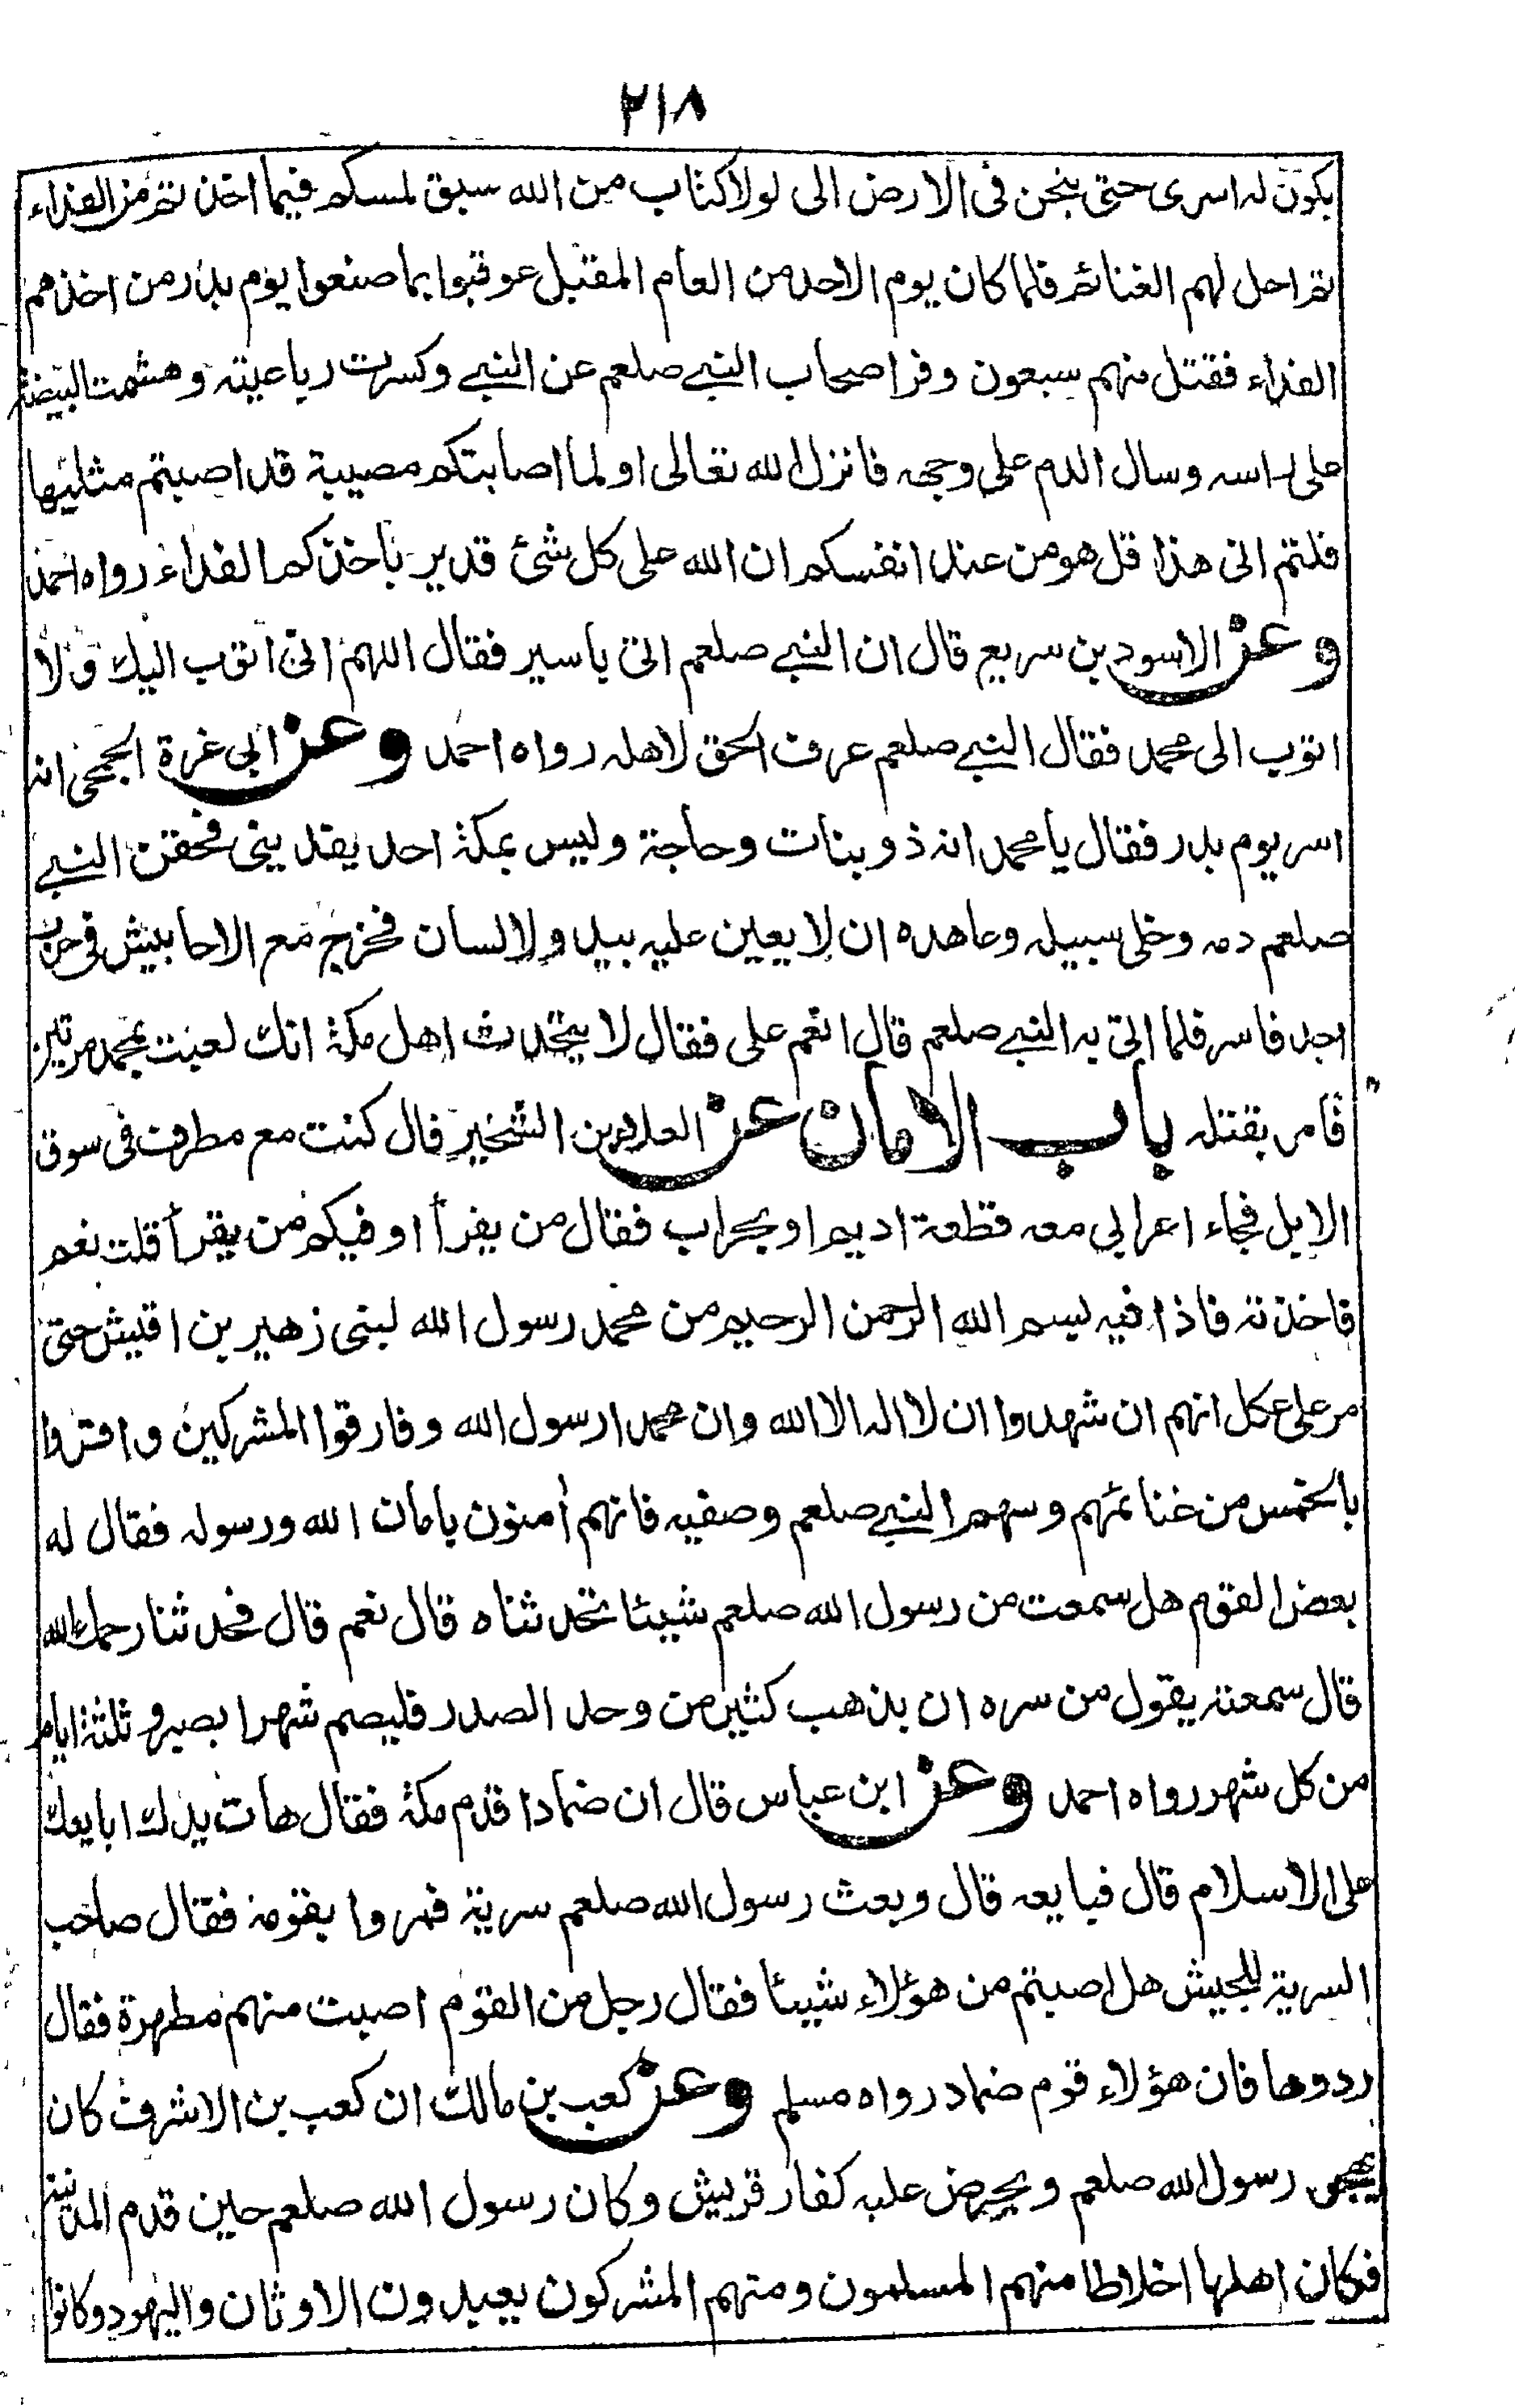 ٢١٨
يكون له اسرى حتى يثخن فى الارض الى لولا كتاب من الله سبق لمسكم فيما اخذ تم من الفداء
ثم احل لهم الغنائم فلما كان يوم الاحد من العام المقبل عوقبوا بما صنعوا يوم بدر من اخذهم
الفداء فقتل منهم سبعون وفر اصحاب النبي صلعم عن النبي وكسرت رباعيته وهشمت البيضة
على راسه وسال الدم على وجهه فانزل الله تعالى اولما اصابتكم مصيبة قد اصبتم مثليها
قلتم انى هذا قل هو من عند انفسكم ان الله على كل شئ قدير باخذكم الفداء رواه احمد
وعن الاسود بن سريع قال ان النبي صلعم اتى باسير فقال اللهم انى اتوب اليك ولا
اتوب الى محمد فقال النبي صلعم عرف الحق لاهله رواه احمد وعن ابى غرة الجمحى انه
اسر يوم بدر فقال يا محمد انه ذو بنات وحاجة وليس بمكة احد يفدينى فحقن النبي
صلعم دمه وخلى سبيله وعاهده ان لا يعين عليه بيد ولا لسان فخرج مع الاحابيش فى حرب
احد فاسر فلما اتى به النبي صلعم قال انعم على فقال لا يتحدث اهل مكة انك لعبت بمحمد مرتين
فامر بقتله باب الامان عن العلاء بن الشخير قال كنت مع مطرف فى سوق
الابل فجاء اعرابى معه قطعة اديم او بجراب فقال من يقرأ او فيكم من يقرأ قلت نعم
فاخذته فاذا فيه بسم الله الرحمن الرحيم من محمد رسول الله لبنى زهير بن اقيش حتى
مر على عكل انهم ان شهدوا ان لا اله الا الله وان محمدا رسول الله وفارقوا المشركين واقروا
بالخمس من غنائمهم وسهم النبي صلعم وصفيه فانهم أمنون بامان الله ورسوله فقال له
بعض القوم هل سمعت من رسول الله صلعم شيئا تحدثناه قال نعم قال فحدثنا رحمك الله
قال سمعته يقول من سره ان يذهب كثير من وحد الصدر فليصم شهرا بصير و ثلثة ايام
من كل شهر رواه احمد وعن ابن عباس قال ان ضمادا قدم مكة فقال هات يدك ابايعك
على الاسلام قال فبايعه قال وبعث رسول الله صلعم سرية فمروا بقومه فقال صاحب
السرية للجيش هل اصبتم من هؤلاء شيئا فقال رجل من القوم اصبت منهم مطهرة فقال
ردوها فان هؤلاء قوم ضماد رواه مسلم وعن كعب بن مالك ان كعب بن الاشرف كان
يهجو رسول الله صلعم ويحرض عليه كفار قريش وكان رسول الله صلعم حين قدم المدينة
فكان اهلها اخلاطا منهم المسلمون ومنهم المشركون يعبدون الاوثان واليهود وكانوا